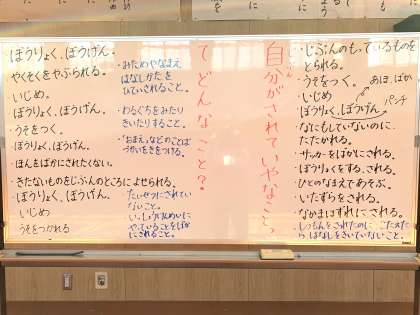 自分がされていやなことっ
て、どんなこと？
・じぶんのもっているものを
とられる。
・うそをつく。
あほ、ばか
・いじめ
パンチ
・ぼうりょく、ぼうげん。
・なにもしていないのに、
たたかれる。
・サッカーをばかにされる。
・ぼうりょくをする、される。
・ひとのなまえであそぶ。
・いたずらをされる。
・なかまはずれにされる。
・しつもんをされたのに、こたえた
ら はなしをきいていないこと。
・みためやなまえ
はなしかたを
ひていされること。
・わるぐちをみたり
きいたりすること。
・「おまえ」などのことば
づかいをきをつける。
・たいせつにされてい
ないこと。
・いっしょうけんめいに
やっていることをばか
にされること。
ぼうりょく、ぼうげん。
やくそくをやぶられる。
・いじめ。
ぼうりょく、ぼうげん。
・うそをつく。
・ぼうりょく、ぼうげん。
・ほんをばかにされたくない。
・きたないものをじぶんのところによせられる。
・ぼうりょく、ぼうげん。
・いじめ
・うそをつかれる